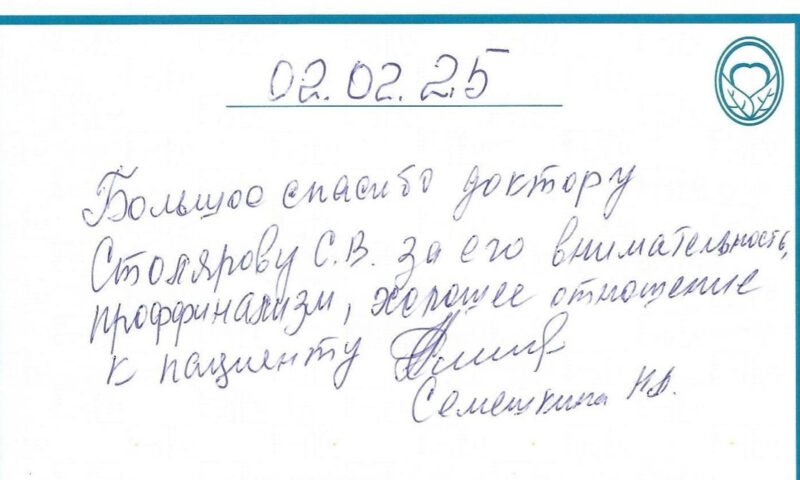 02.02.25
Большое спасибо доктору
Столярову С.В. за его внимательность,
проффинализм, хорошее отношение
к пациенту
Семешкина Н.А.